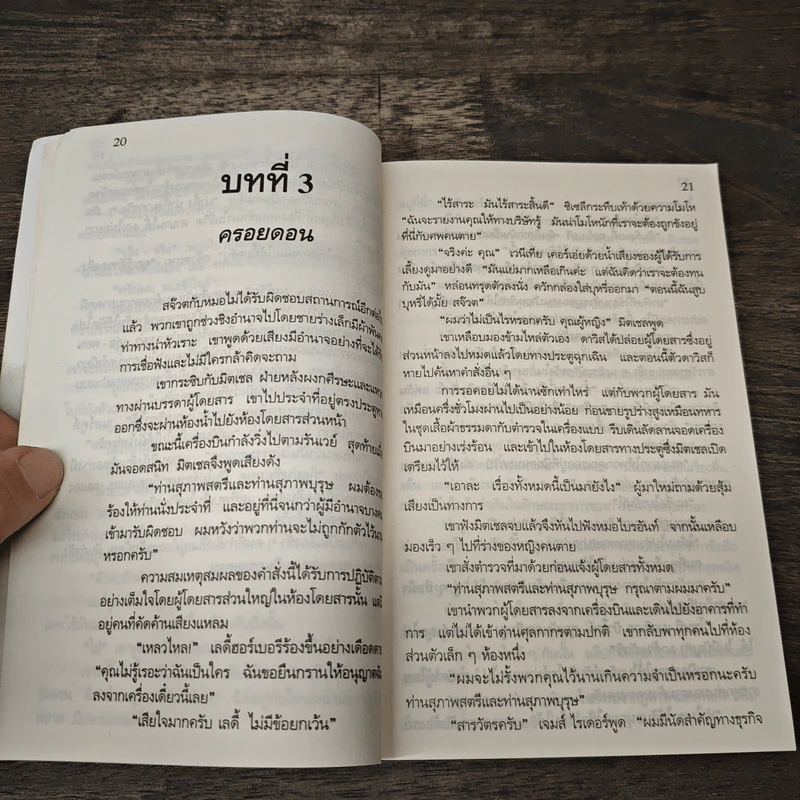 20
บทที่ 3
ครอยดอน
สจ๊วตกับหมอไม่ได้รับผิดชอบสถานการณ์อีกต่อไป
แล้ว พวกเขาถูกช่วงชิงอำนาจไปโดยชายร่างเล็กมีผ้าพันคอ
ท่าทางน่าหัวเราะ เขาพูดด้วยเสียงมีอำนาจอย่างที่จะได้รับ
การเชื่อฟังและไม่มีใครกล้าคิดจะถาม
เขากระซิบกับมิตเชล ฝ่ายหลังผงกศีรษะและแหวก
ทางผ่านบรรดาผู้โดยสาร เขาไปประจำที่อยู่ตรงประตูทาง
ออกซึ่งจะผ่านห้องน้ำไปยังห้องโดยสารส่วนหน้า
ขณะนี้เครื่องบินกำลังวิ่งไปตามรันเวย์ สุดท้ายเมื่อ
มันจอดสนิท มิตเชลจึงพูดเสียงดัง
“ท่านสุภาพสตรีและท่านสุภาพบุรุษ ผมต้องขอ
ร้องให้ท่านนั่งประจำที่ และอยู่ที่นี่จนกว่าผู้มีอำนาจบางคน
เข้ามารับผิดชอบ ผมหวังว่าพวกท่านจะไม่ถูกกักตัวไว้นาน
หรอกครับ”
ความสมเหตุสมผลของคำสั่งนี้ได้รับการปฏิบัติตาม
อย่างเต็มใจโดยผู้โดยสารส่วนใหญ่ในห้องโดยสารนั้น แต่มี
อยู่คนที่คัดค้านเสียงแหลม
“เหลวไหล!” เลดี้ฮอร์เบอรีร้องขึ้นอย่างเดือดดาล
“คุณไม่รู้เรอะว่าฉันเป็นใคร ฉันขอยืนกรานให้อนุญาตฉัน
ลงจากเครื่องเดี๋ยวนี้เลย”
“เสียใจมากครับ เลดี้ ไม่มีข้อยกเว้น”
21
“ไร้สาระ มันไร้สาระสิ้นดี” ซิเซลีกระทืบเท้าด้วยความโมโห
“ฉันจะรายงานคุณให้ทางบริษัทรู้ มันน่าโมโหนักที่เราจะต้องถูกขังอยู่
ที่นี่กับศพคนตาย”
“จริงค่ะ คุณ” เวนีเทีย เคอร์เอ่ยด้วยน้ำเสียงของผู้ได้รับการ
เลี้ยงดูมาอย่างดี “มันแย่มากเหลือเกินค่ะ แต่ฉันคิดว่าเราจะต้องทน
กับมัน” หล่อนทรุดตัวลงนั่ง ควักกล่องใส่บุหรี่ออกมา “ตอนนี้ฉันสูบ
บุหรี่ได้มั้ย สจ๊วต”
“ผมว่าไม่เป็นไรหรอกครับ คุณผู้หญิง” มิตเชลพูด
เขาเหลือบมองข้ามไหล่ตัวเอง ดาวิสได้ปล่อยผู้โดยสารซึ่งอยู่
ส่วนหน้าลงไปหมดแล้วโดยทางประตูฉุกเฉิน และตอนนี้ตัวดาวิสก็
หายไปค้นหาคำสั่งอื่น ๆ
การรอคอยไม่ได้นานซักเท่าไหร่ แต่กับพวกผู้โดยสาร มัน
เหมือนครึ่งชั่วโมงผ่านไปเป็นอย่างน้อย ก่อนชายรูปร่างสูงเหมือนทหาร
ในชุดเสื้อผ้าธรรมดากับตำรวจในเครื่องแบบ รีบเดินลัดลานจอดเครื่อง
บินมาอย่างเร่งร้อน และเข้าไปในห้องโดยสารทางประตูซึ่งมิตเชลเปิด
เตรียมไว้ให้
“เอาละ เรื่องทั้งหมดนี้เป็นมายังไง” ผู้มาใหม่ถามด้วยสุ้ม
เสียงเป็นทางการ
เขาฟังมิตเชลจบแล้วจึงหันไปฟังหมอไบรอันท์ จากนั้นเหลือบ
มองเร็ว ๆ ไปที่ร่างของหญิงคนตาย
เขาสั่งตำรวจที่มาด้วยก่อนแจ้งผู้โดยสารทั้งหมด
“ท่านสุภาพสตรีและท่านสุภาพบุรุษ กรุณาตามผมมาครับ”
เขานำพวกผู้โดยสารลงจากเครื่องบินและเดินไปยังอาคารที่ทำ
การ แต่ไม่ได้เข้าด่านศุลกากรตามปกติ เขากลับพาทุกคนไปที่ห้อง
ส่วนตัวเล็ก ๆ ห้องหนึ่ง
“ผมจะไม่รั้งพวกคุณไว้นานเกินความจำเป็นหรอกนะครับ
ท่านสุภาพสตรีและท่านสุภาพบุรุษ”
“สารวัตรครับ” เจมส์ ไรเดอร์พูด “ผมมีนัดสำคัญทางธุรกิจ